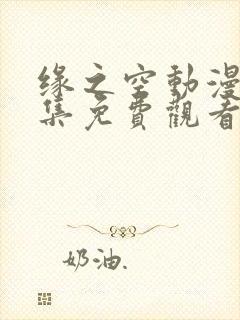 缘之空動漫
集免費觀看
奶油.